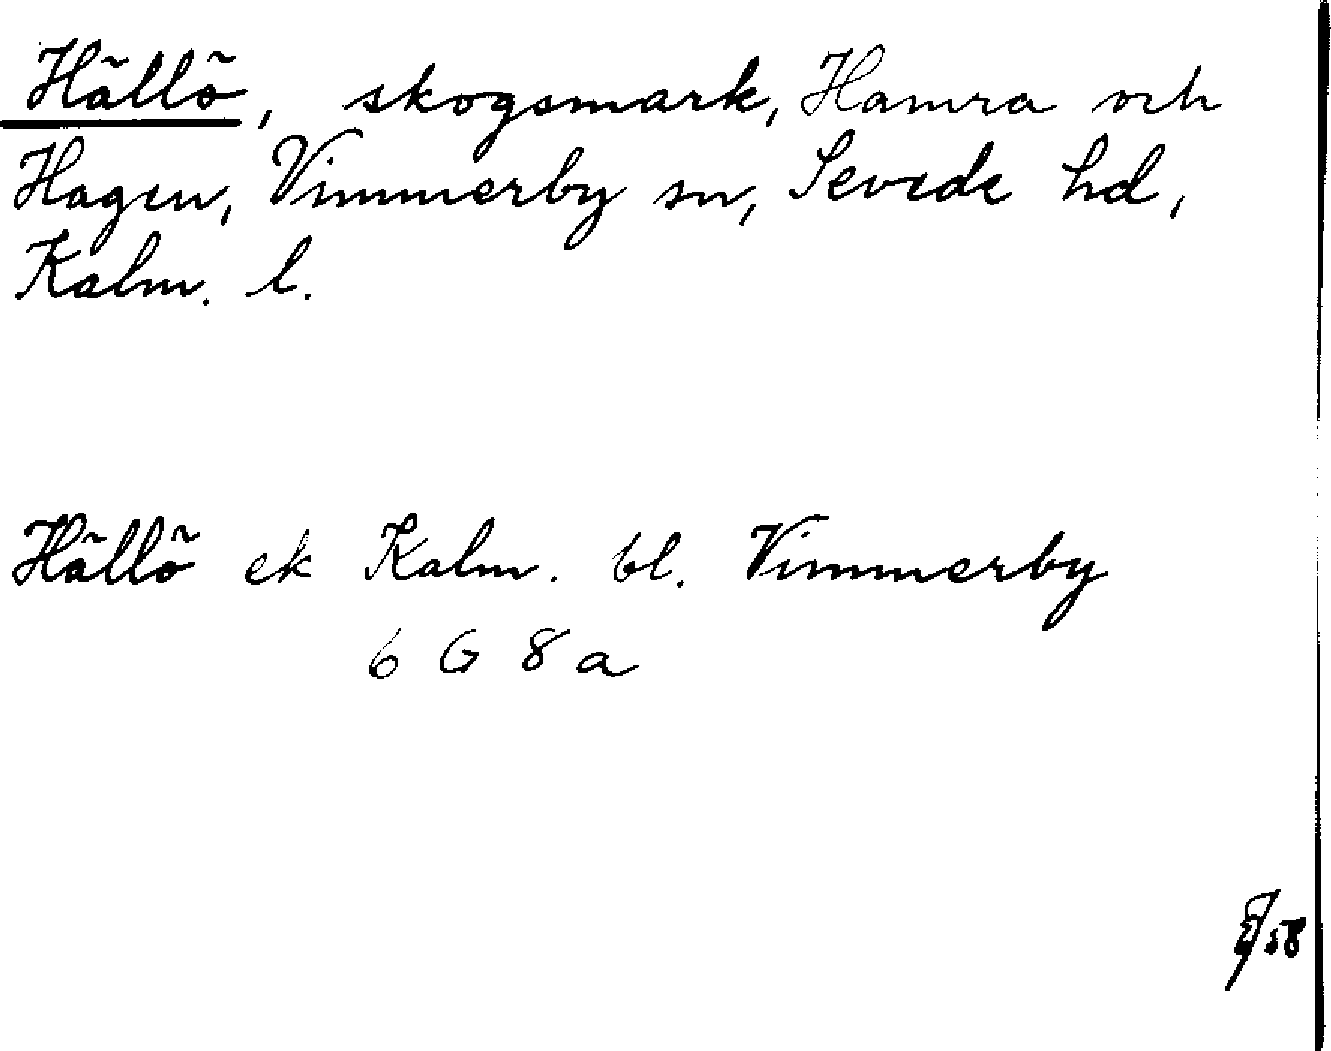 Hällö, skogsmark, Hamra och
Hagen, Vimmerby sn, Sevede hd,
Kalm. l.
Hällö ek Kalm. bl. Vimmerby
6 G 8 a
58